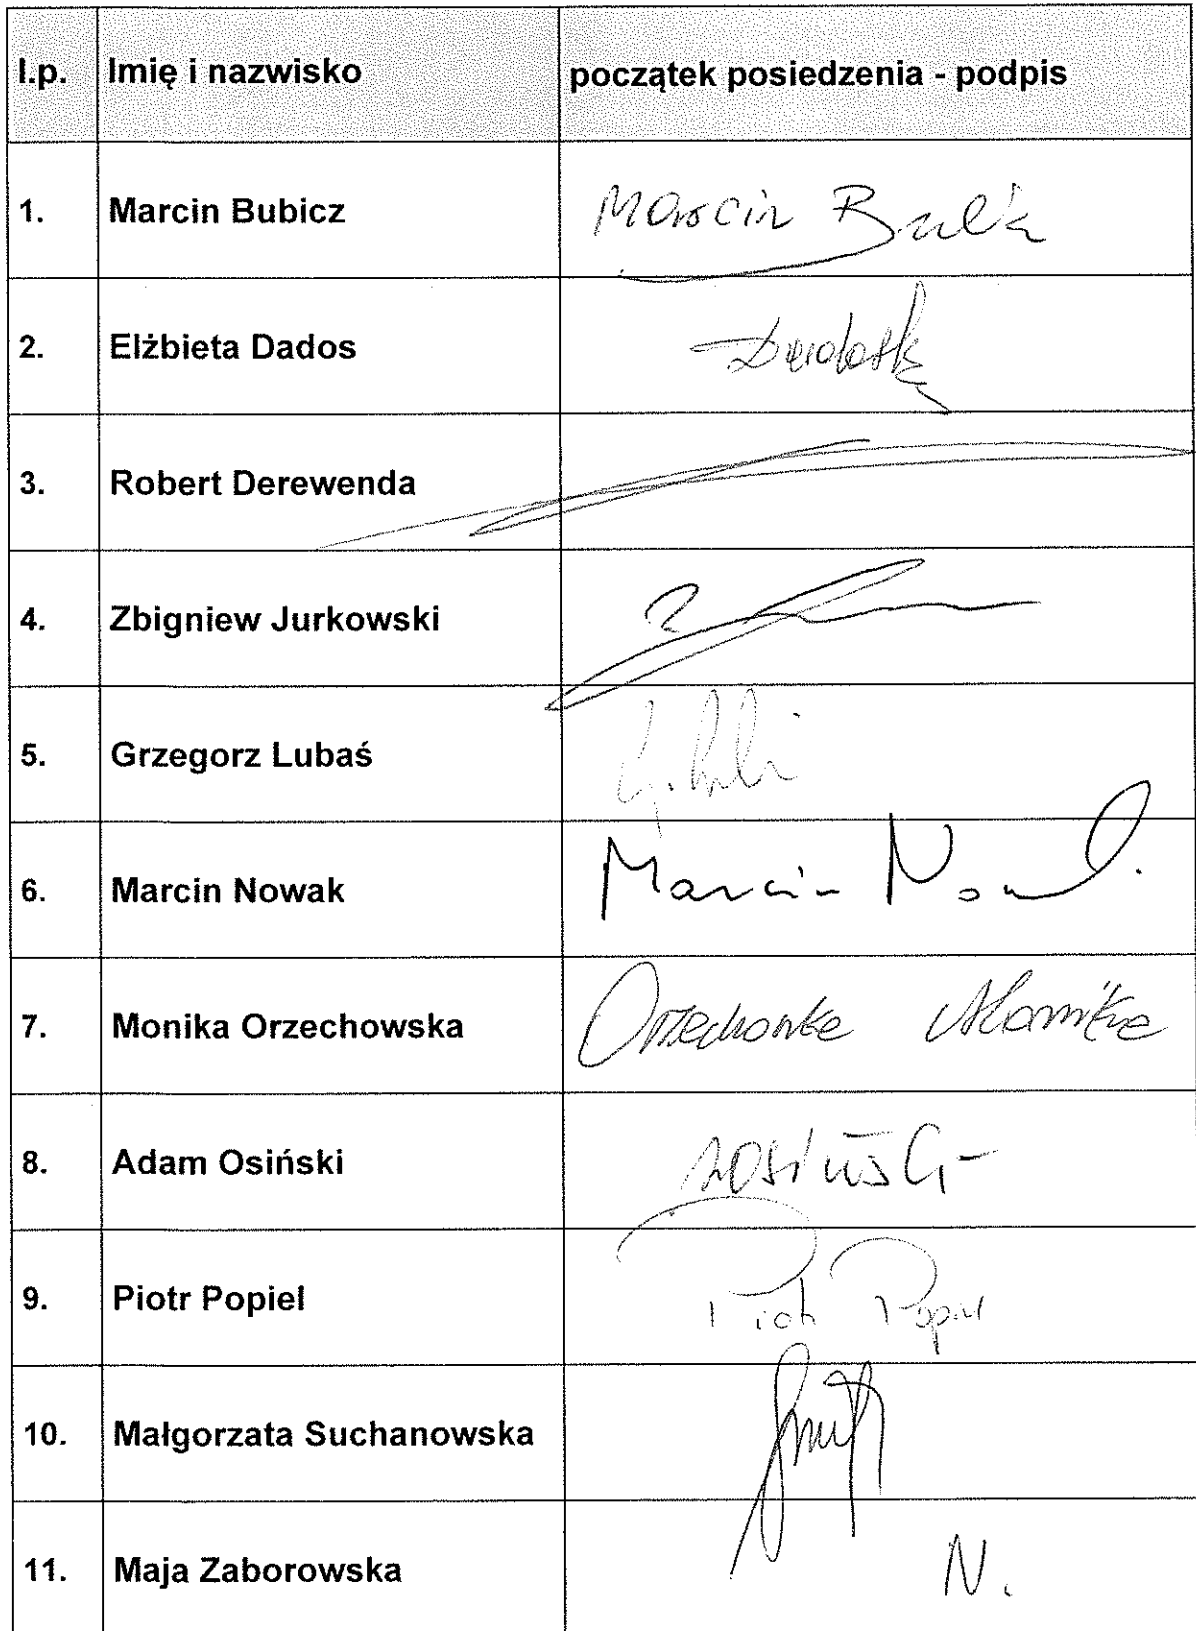 l.p. Imię i nazwisko początek posiedzenia - podpis
1. Marcin Bubicz Marcin
2. Elżbieta Dados
3. Robert Derewenda
4. Zbigniew Jurkowski
5. Grzegorz Lubaś
6. Marcin Nowak Marcin
7. Monika Orzechowska Monika
8. Adam Osiński
9. Piotr Popiel Piotr Popiel
10. Małgorzata Suchanowska
11. Maja Zaborowska N.